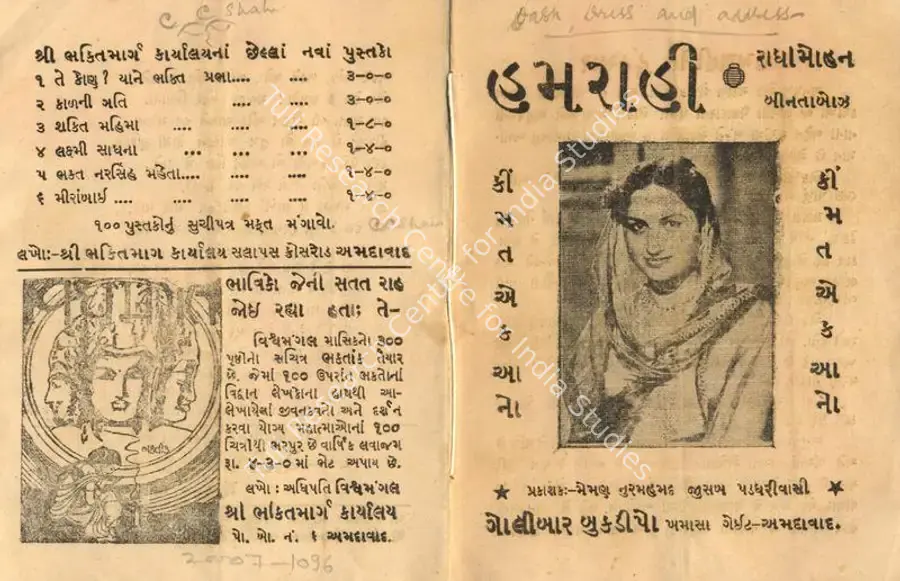 C C Shah
શ્રી ભક્તિમાર્ગ કાર્યાલયનાં છેલ્લાં નવાં પુસ્તકો
૧ તે કોણ? યાને ભક્તિ પ્રભા.... .... ૩-૦-૦
૨ કાળની ગતિ .... .... ૩-૦-૦
૩ શક્તિ મહિમા .... .... .... ૧-૮-૦
૪ લક્ષ્મી સાધના ... .... .... ૧-૪-૦
૫ ભક્ત નરસિંહ મહેતા.... .... ૧-૪-૦
૬ મીરાંબાઈ .... .... .... ૧-૪-૦
૧૦૦ પુસ્તકોનું સુચીપત્ર મફત મંગાવો.
લખો:-શ્રી ભક્તિમાગ કાર્યાલય સલાપસ ક્રોસરોડ અમદાવાદ
ભાવિકો જેની સતત રાહ
જોઇ રહ્યા હતા; તે-
વિશ્વમંગલ માસિકનો ૩૦૦
પૃષ્ઠોનો સચિત્ર ભક્તાંક તૈયાર
છે. જેમાં ૧૦૦ ઉપરાંત ભક્તોનાં
વિદ્વાન લેખકોના હાથથી આ-
લેખાયેલાં જીવનકવનો અને દર્શન
કરવા યોગ્ય મહાત્માઓનાં ૧૦૦
ચિત્રોથી ભરપુર છે વાર્ષિક લવાજમ
રૂા. ૪-૩-૦ માં ભેટ અપાય છે.
લખો : અધિપતિ વિશ્વમંગલ
શ્રી ભક્તિમાર્ગ કાર્યાલય
પો. બો. નં. ૬ અમદાવાદ.
ભક્તાંક
20007-1096
dress and address
હમરાહી
રાધામોહન
બીનતાબોઝ
કીં મ ત એ ક આ નો
કીં મ ત એ ક આ નો
પ્રકાશક:-મેમણ નુરમહમદ જીુસબ પડધરીવાસી
ગોલીબાર બુકડીપો ખમાસા ગેઈટ-અમદાવાદ.
Tulip Research Centre for India Studies